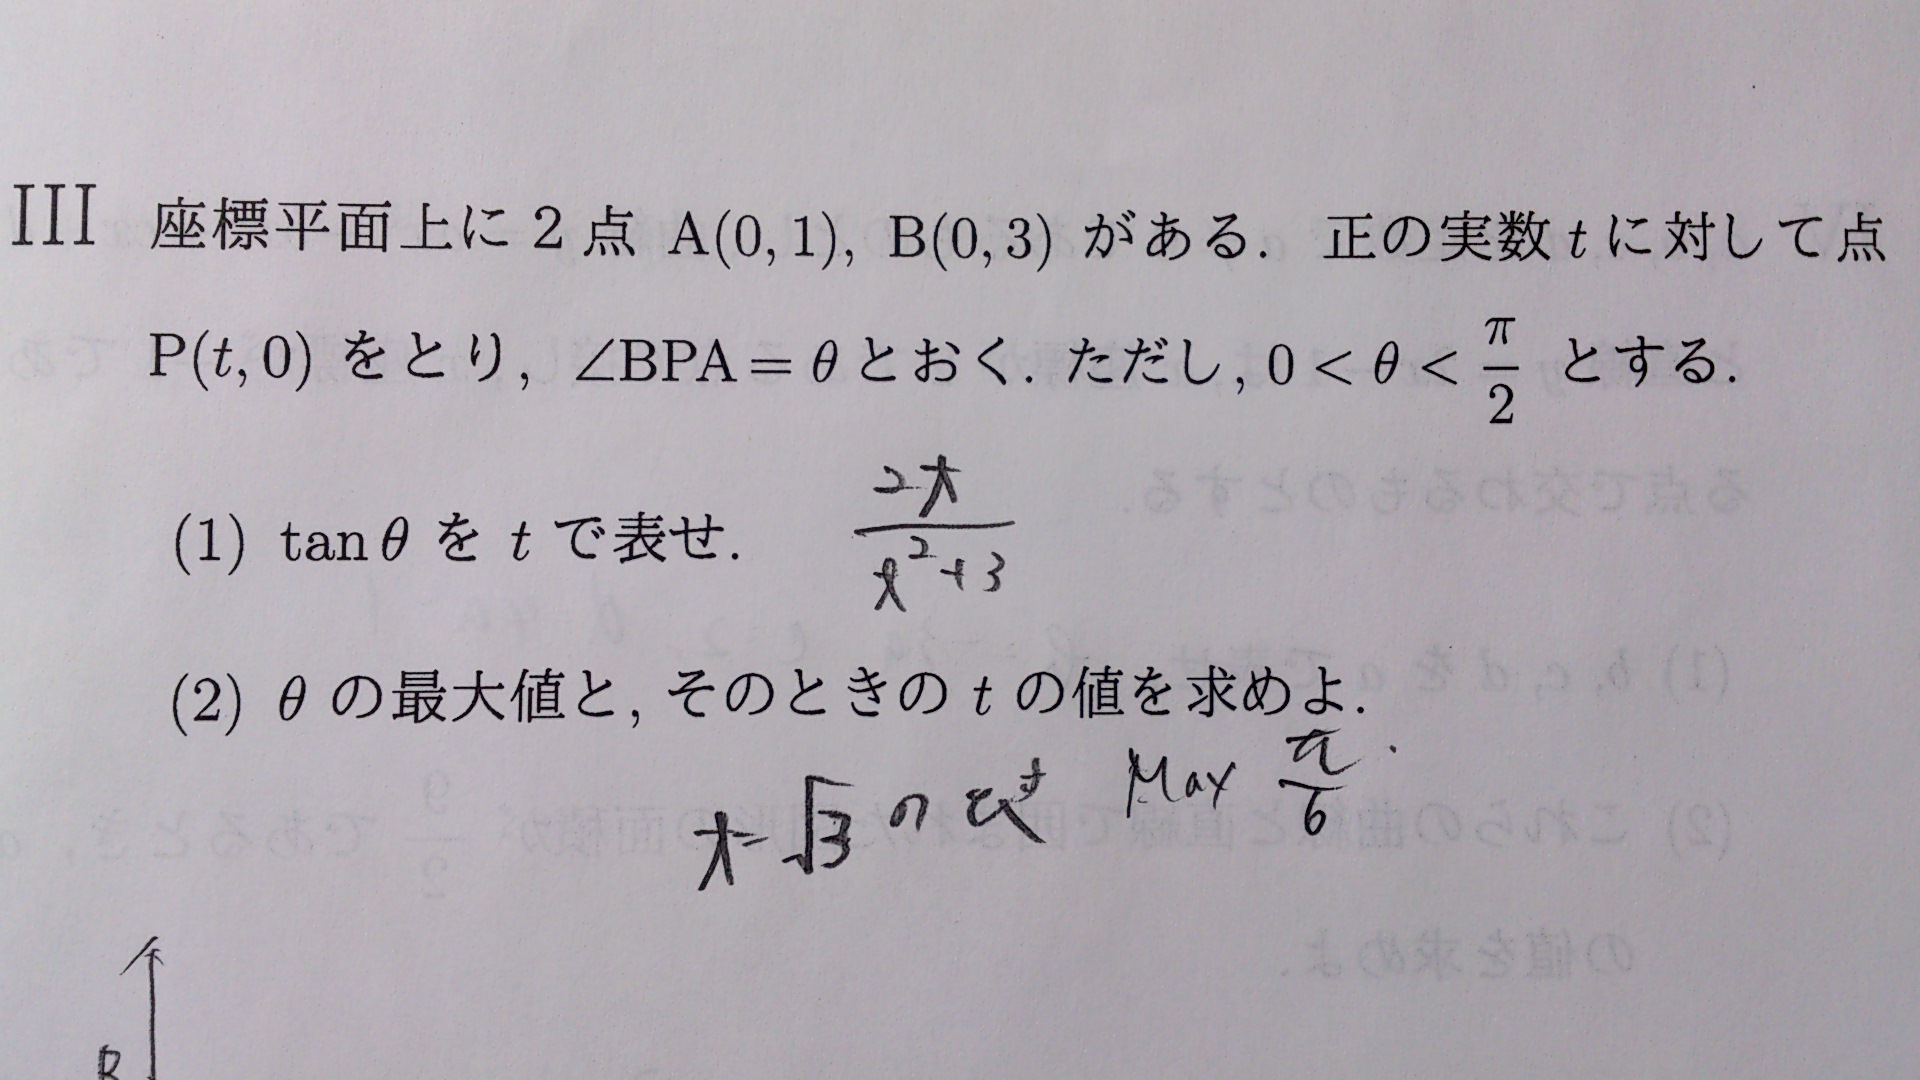 III 座標平面上に 2 点 A(0, 1), B(0, 3) がある. 正の実数 t に対して点
P(t, 0) をとり, ∠BPA = θ とおく. ただし, 0 < θ < π/2 とする.
(1) tan θ を t で表せ. 2t/(t²+3)
(2) θ の最大値と, そのときの t の値を求めよ.
t=√3 のとき Max π/6.
B